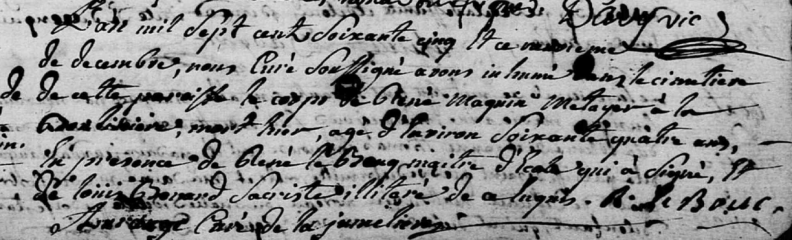 Davy vic
L'an mil sept cent soixante cinq et ce
de decembre, nous Curé soussigné avons inhumé dans le cimetiere
de de cette paroisse le corps de René Maquin Metayer à la
mort hier, agé d'Environ soixante quatre ans,
En presence de René le Bouc maitre d'Ecole qui à signé, Et
de louis Sacriste illitéré de ce enquis. R. Le Bouc.
Curé de la jumeliere